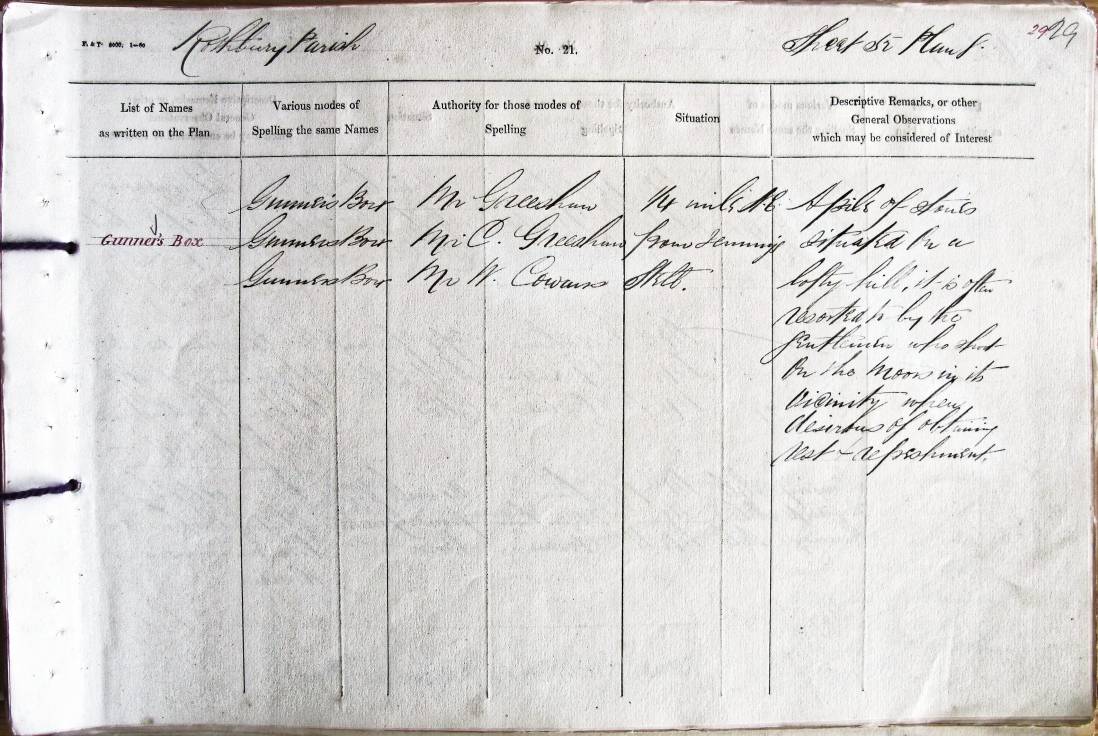 F. & T. 5000; 1—60
Rothbury Parish
No. 21.
Sheet 52 Plan 8.
29 29
List of Names
as written on the Plan
Various modes of
Spelling the same Names
Authority for those modes of
Spelling
Situation
Descriptive Remarks, or other
General Observations
which may be considered of Interest
Gunner's Box
Gunner's Box
Gunners Box
Gunners Box
Mr Greeshaw
Mr C. Greeshaw
Mr W. Cowans
1/4 mile N.E.
from Jemmy's
Stell.
A pile of stones
situated on a
lofty hill, it is often
resorted to by the
gentlemen who shoot
on the Moors in its
vicinity when
desirous of obtaining
rest & refreshment.